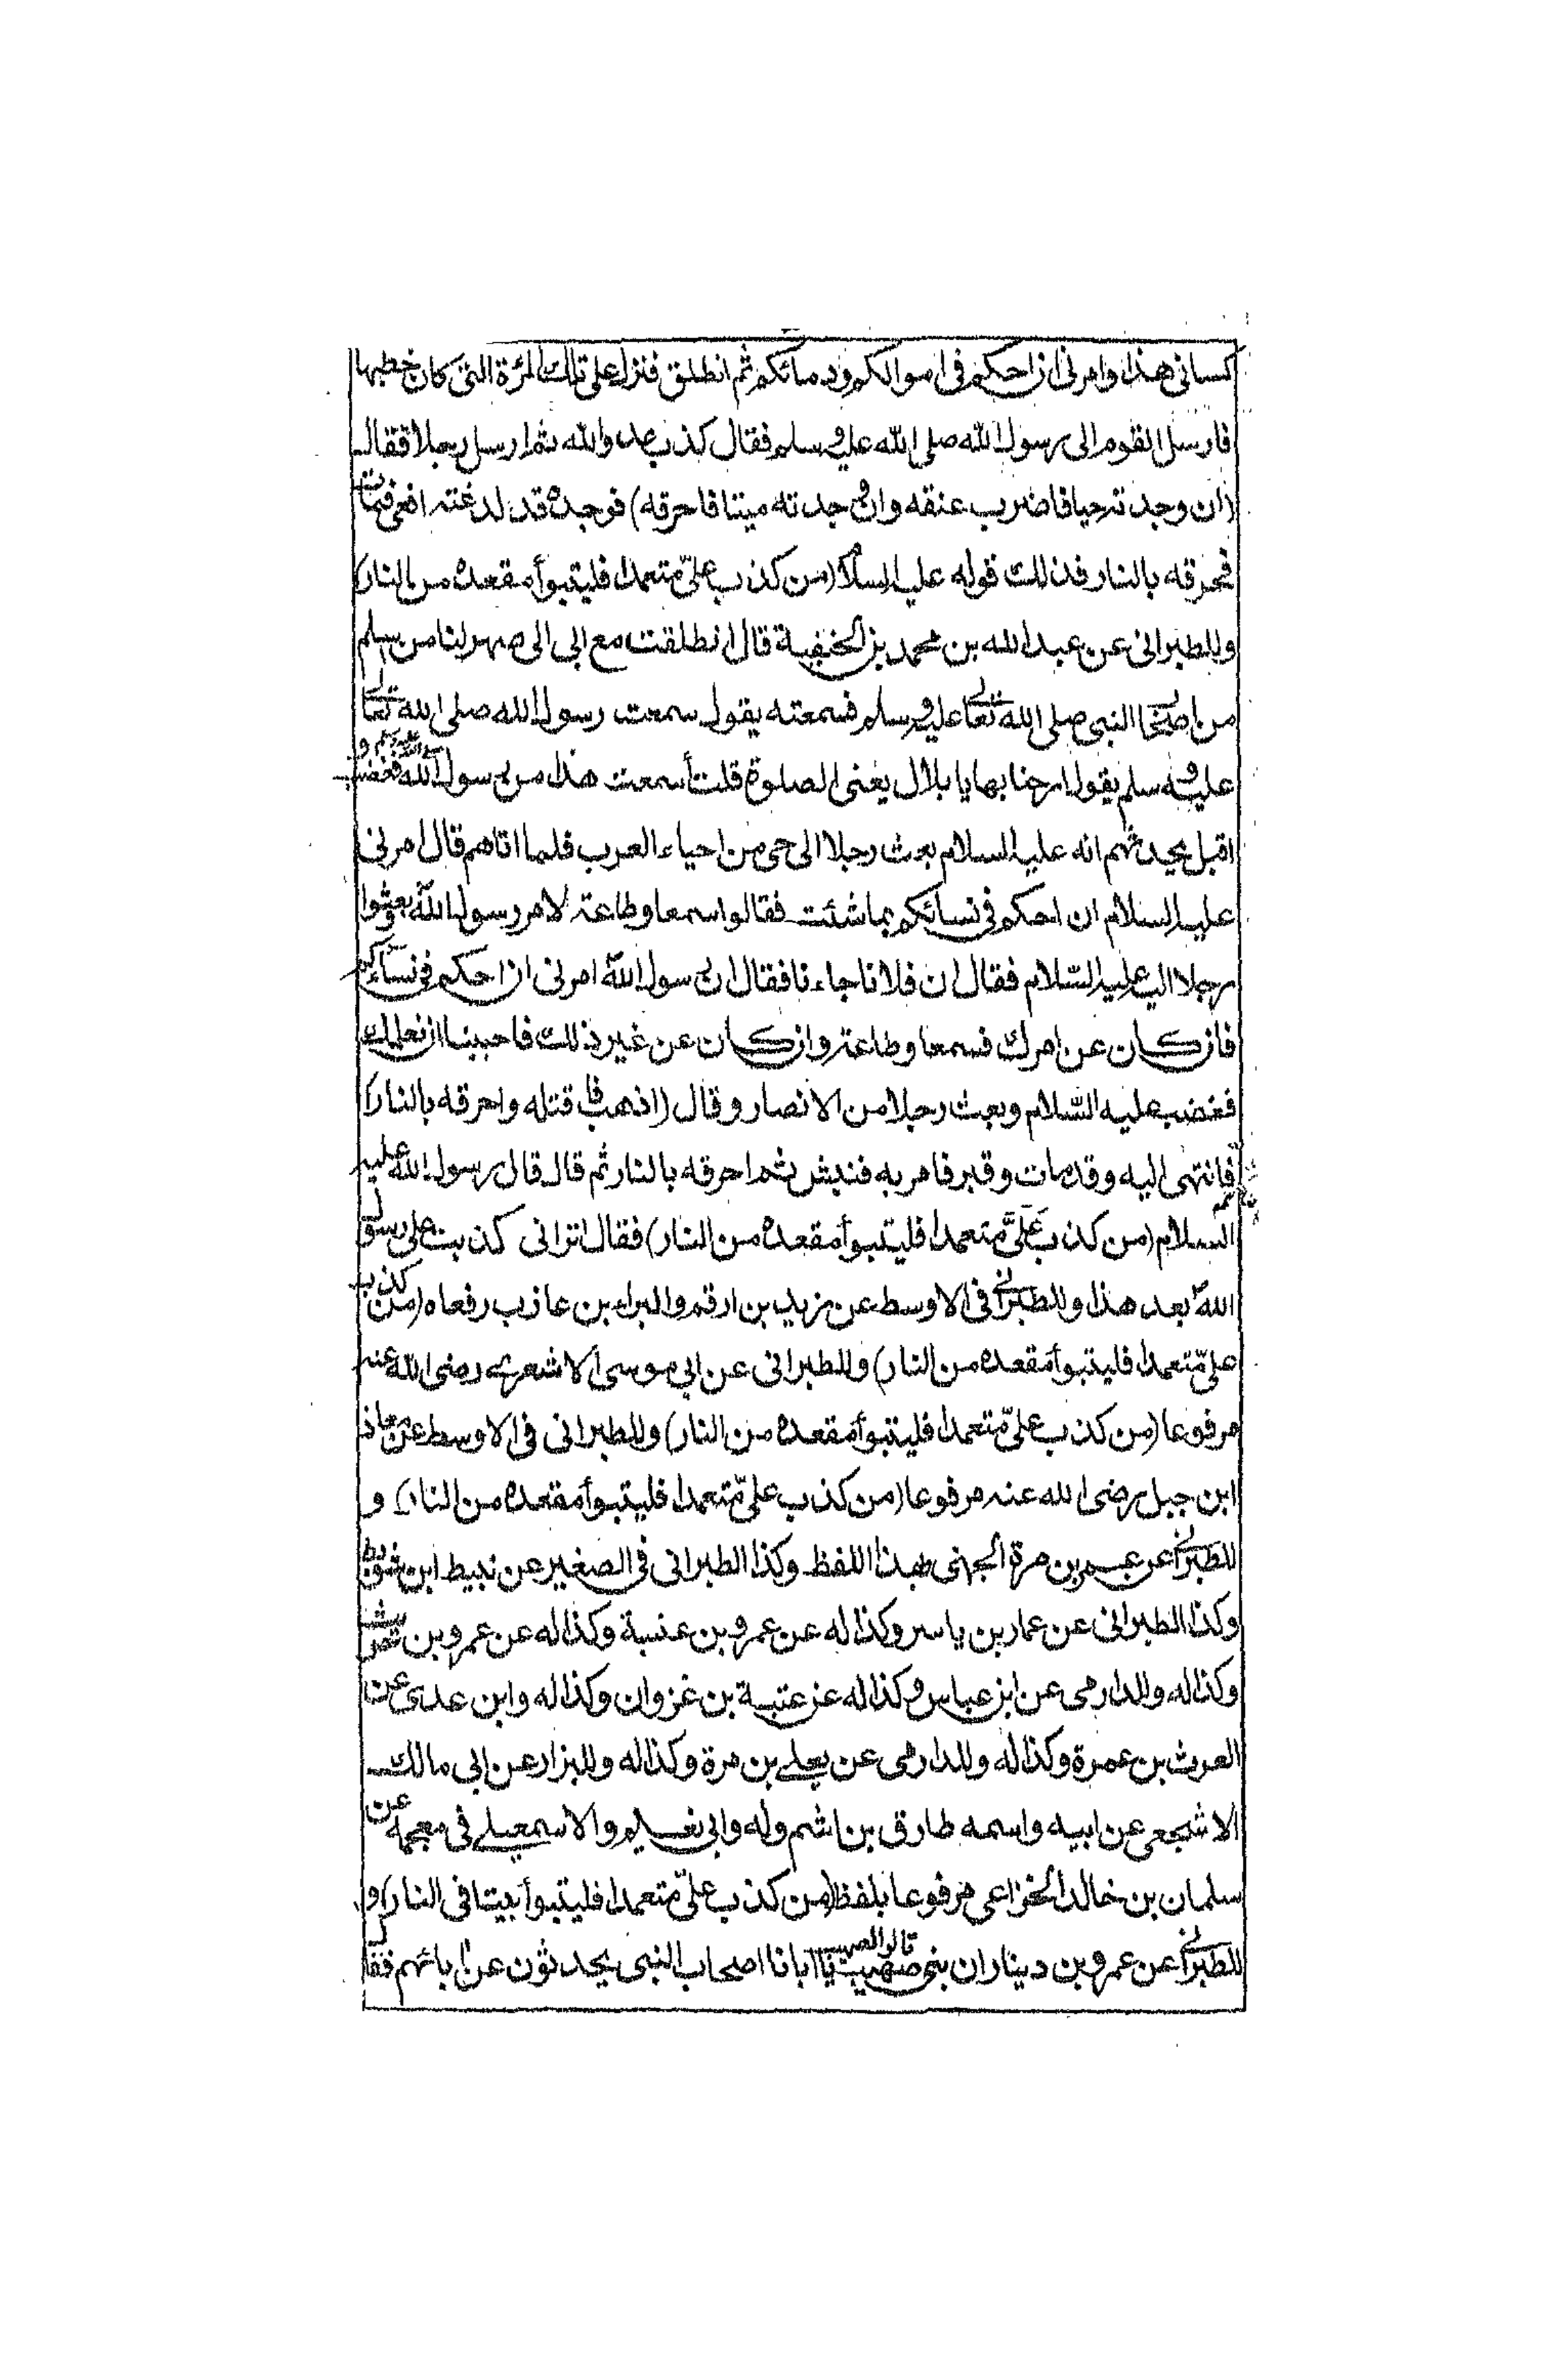 كسانى هذا وامرنى ان احكم فى اموالكم ودمائكم ثم انطلق فنزل على تلك المرئة التى كان خطبها
فارسل القوم الى رسول الله صلى الله عليه وسلم فقال كذب عدو الله ثم ارسل رجلا فقال
(ان وجدته حيا فاضرب عنقه وان وجدته ميتا فاحرقه) فوجده قد لدغته افعى فمات
فحرقه بالنار فذلك قوله عليه السلام (من كذب علىّ متعمدا فليتبوأ مقعده من النار)
وللطبرانى عن عبد الله بن محمد بن الحنفية قال انطلقت مع ابى الى صهر لنا من سلم
من اصحٰب النبى صلى الله تعالى عليه وسلم فسمعته يقول سمعت رسول الله صلى الله تعالى
عليه وسلم يقول ارحنا بها يا بلال يعنى الصلوة قلت أسمعت هذا من رسول الله فغضب و
اقبل يحدثهم انه عليه السلام بعث رجلا الى حى من احياء العرب فلما اتاهم قال امرنى
عليه السلام ان احكم فى نسائكم بما شئت فقالوا سمعا وطاعة لامر رسول الله وبعثوا
رجلا اليه عليه السّلام فقال ان فلانا جاءنا فقال ان رسول الله امرنى ان احكم فى نساءكم
فان كان عن امرك فسمعا وطاعة وان كان عن غير ذلك فاحببنا ان نعلمك
فغضب عليه السّلام وبعث رجلا من الانصار وقال (اذهب فاقتله واحرقه بالنار)
فانتهى اليه وقد مات وقبر فامر به فنبش ثم احرقه بالنار ثم قال قال رسول الله عليه
السلام (من كذب عَلَىَّ متعمدا فليتبوأ مقعده من النار) فقال اترانى كذبت على رسول
الله بعد هذا وللطبرانى فى الاوسط عن زيد بن ارقم والبراء بن عازب رفعاه (من كذب
علىّ متعمدا فليتبوأ مقعده من النار) وللطبرانى عن ابى موسى الاشعرى رضى الله عنه
مرفوعا (من كذب علىّ متعمدا فليتبوأ مقعده من النار) وللطبرانى فى الاوسط عن معاذ
ابن جبل رضى الله عنه مرفوعا (من كذب علىّ متعمدا فليتبوأ مقعده من النار) و
للطبرانى عن عمرو بن مرة الجهنى بهذا اللفظ وكذا الطبرانى فى الصغير عن نبيط ابن شريط
وكذا الطبرانى عن عمار بن ياسر وكذا له عن عمرو بن عنبسة وكذا له عن عمرو بن حريث
وكذا له وللدارمى عن ابن عباس وكذا له عن عتبة بن غزوان وكذا له وابن عدى عن
العرث بن عمرة وكذا له وللدارمى عن يعلى بن مرة وكذا له وللبزار عن ابى مالك
الاشجعى عن ابيه واسمه طارق بن اشيم وله وابى نعيم والاسمعيلى فى معجمه عن
سلمان بن خالد الخزاعى مرفوعا بلفظ (من كذب علىّ متعمدا فليتبوأ بيتا فى النار) و
للطبرانى عن عمرو بن دينار ان بنى صهيب قالوا لصهيب يا ابانا اصحاب النبى يحدثون عن ابائهم فقال